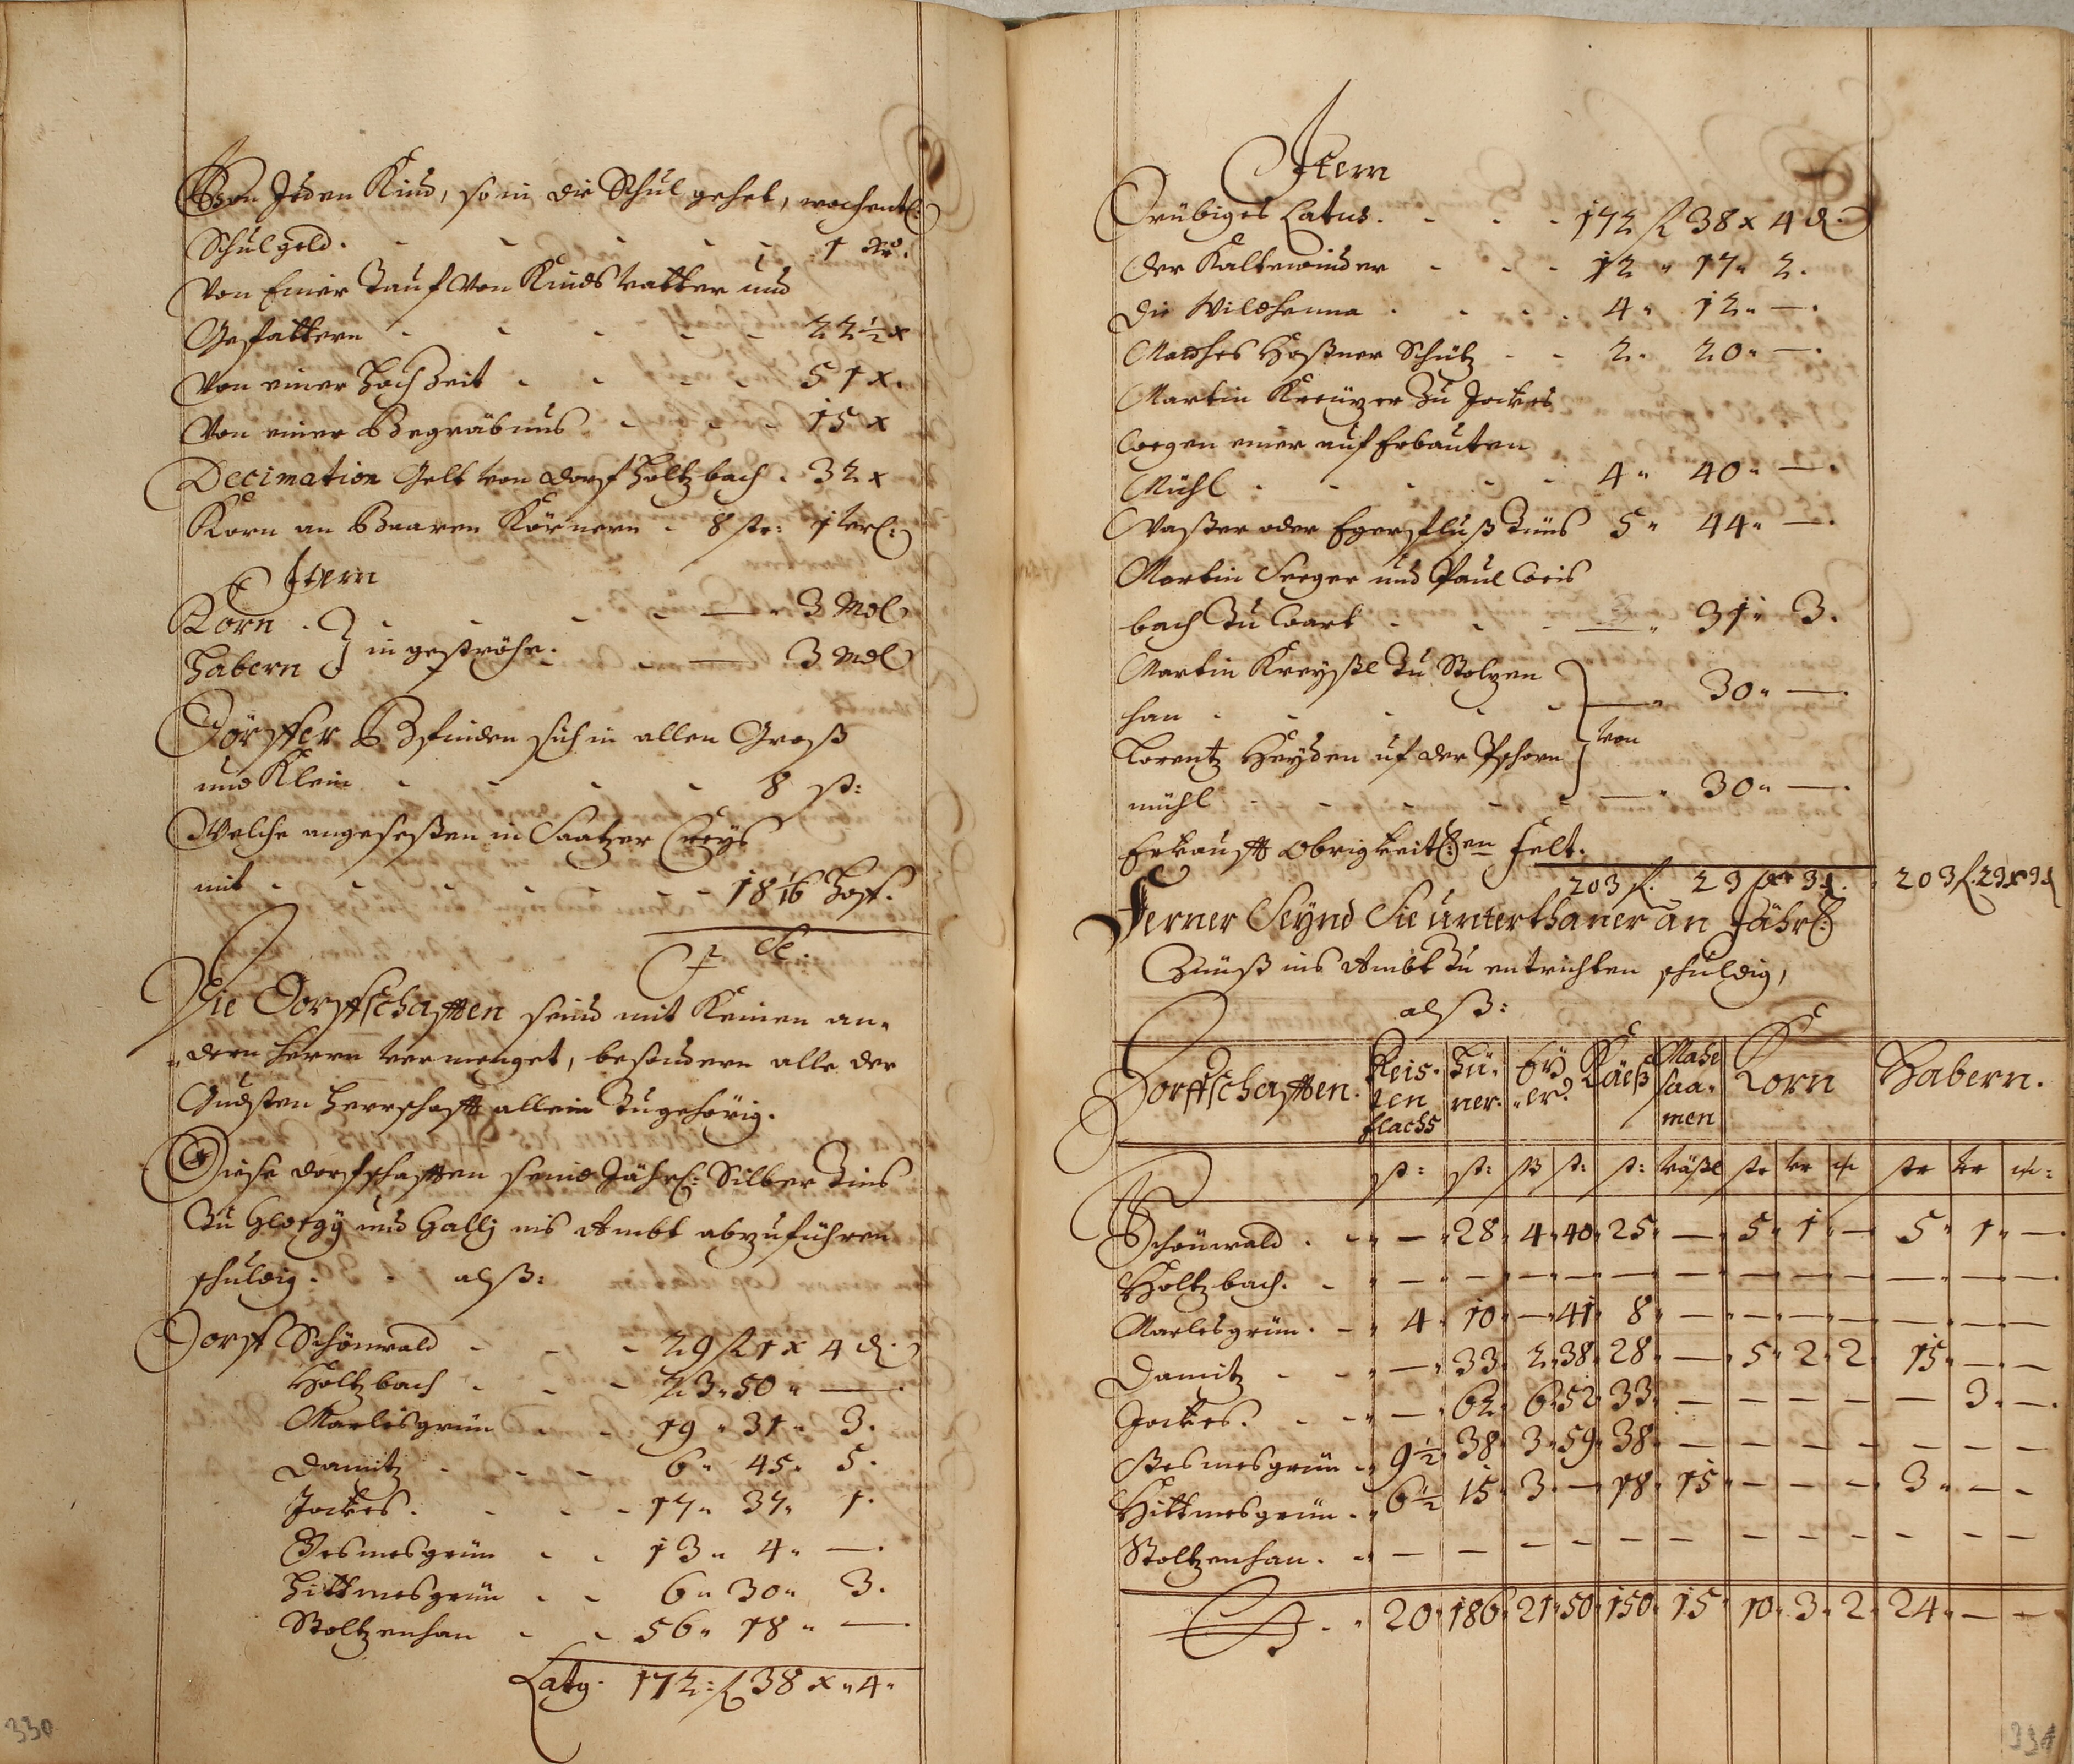 Von Jeden Kind, so in die Schul gehet, wochentl:
Schulgeld. - - - - - 1 kr.
Von Einer Tauf Von Kinds Vatter und
Gefattern - - - - - 22½ x
Von einer Hochzeit - - - - 51 x.
Von einer Begräbnus - - - 15 x
Decimation Gelt von dorf Holtzbach - 32 x
Korn an Baaren Körnern - 8 str: 1 verl:
Item
Korn - - - - - 3 Mdl
Habern } in geströhe. - - 3 Mdl
Dörffer Befinden sich in allen Gross
und Klein - - - - 8 st:
Welche angesessen in Saatzer Creys
mit - - - - - - 18 1/16 Hoff.
Die Dorffschafften seind mit Keinen an-
-dern Herrn vermenget, besondern alle der
Gndsten Herrschafft allein zugehörig.
Diese dorfschafften seind Jährl: Silber Zins
Zu Georgÿ und Gallj ins Ambt abzuführen
schuldig - - alß:
Dorff Schönwald - - - 29 fl 1 x 4 d.
Holtzbach - - - 23 " 50 " —
Marlesgrün - - 19 " 31 " 3.
Damitz - - - 6 " 45 " 5.
Jockes. - - - 17 " 37 " 1.
Besmesgrün - - 13 " 4 " —
Hittmesgrün - - 6 " 30 " 3.
Stoltzenhan - - 56 " 18 " —
Latg. 172: fl 38 x " 4 "
330
Item
Drübiges Latus. - - - 172 fl 38 x 4 d.
Der Kaltewinder - - - 12 " 17 " 2.
Die Wildhenna - - - - 4 " 12 " —.
Mathes Hoßner Schütz - - 2 " 20 " —.
Martin Kreüzer Zu Jockes
wegen einer auf Erbauten
Mühl - - - - - 4 " 40 " —.
Waßer oder Egerfluß Zins 5 " 44 " —.
Martin Seeger und Paul Weis
bach Zu Wart - - - — " 31 " 3.
Martin Kreyßl Zu Stolzen
han - - - - - — " 30 " —.
Lorentz Heyden uf der Pfhorn } von
mühl - - - - - — " 30 " —.
Erkaufft Obrigkeitl:en Felt.
203 fl. 23 x 3 d. 203 fl. 23 x 3 d
Ferner Seÿnd Sie unterthaner an Jährl:
Zinß ins Ambt Zu entrichten schuldig,
alß:
Dorffschafften. Reis- ten flachs Hü- ner. Eÿ -er. Käeß Mahe saa- men Korn Habern.
st: st: ß st: st: väßl str vr str vr
Schönwald. - " — " 28 " 4 " 40 " 25 " — " 5 " 1 " — 5 " 1 " —
Holtzbach. - " — " — " — " — " — " — " — " — " — — " — " —
Marlesgrün. - " 4 " 10 " — " 41 " 8 " — " — " — " — — " — " —
Damitz - - " — " 33 " 2 " 38 " 28 " — " 5 " 2 " 2 " 15 " — " —
Jockes. - - " — " 62 " 6 " 52 " 33 " — — — — — 3 " —
Besmesgrün - " 9½ " 38 " 3 " 59 " 38 " — — — — — — —
Hittmesgrün. " 6½ " 15 " 3 " — " 18 " 15 " — — — 3 " — —
Stoltzenhan. - " — — — — — — — — — — — —
20 " 186 " 21 " 50 " 150 " 15 " 10 " 3 " 2 " 24 " — —